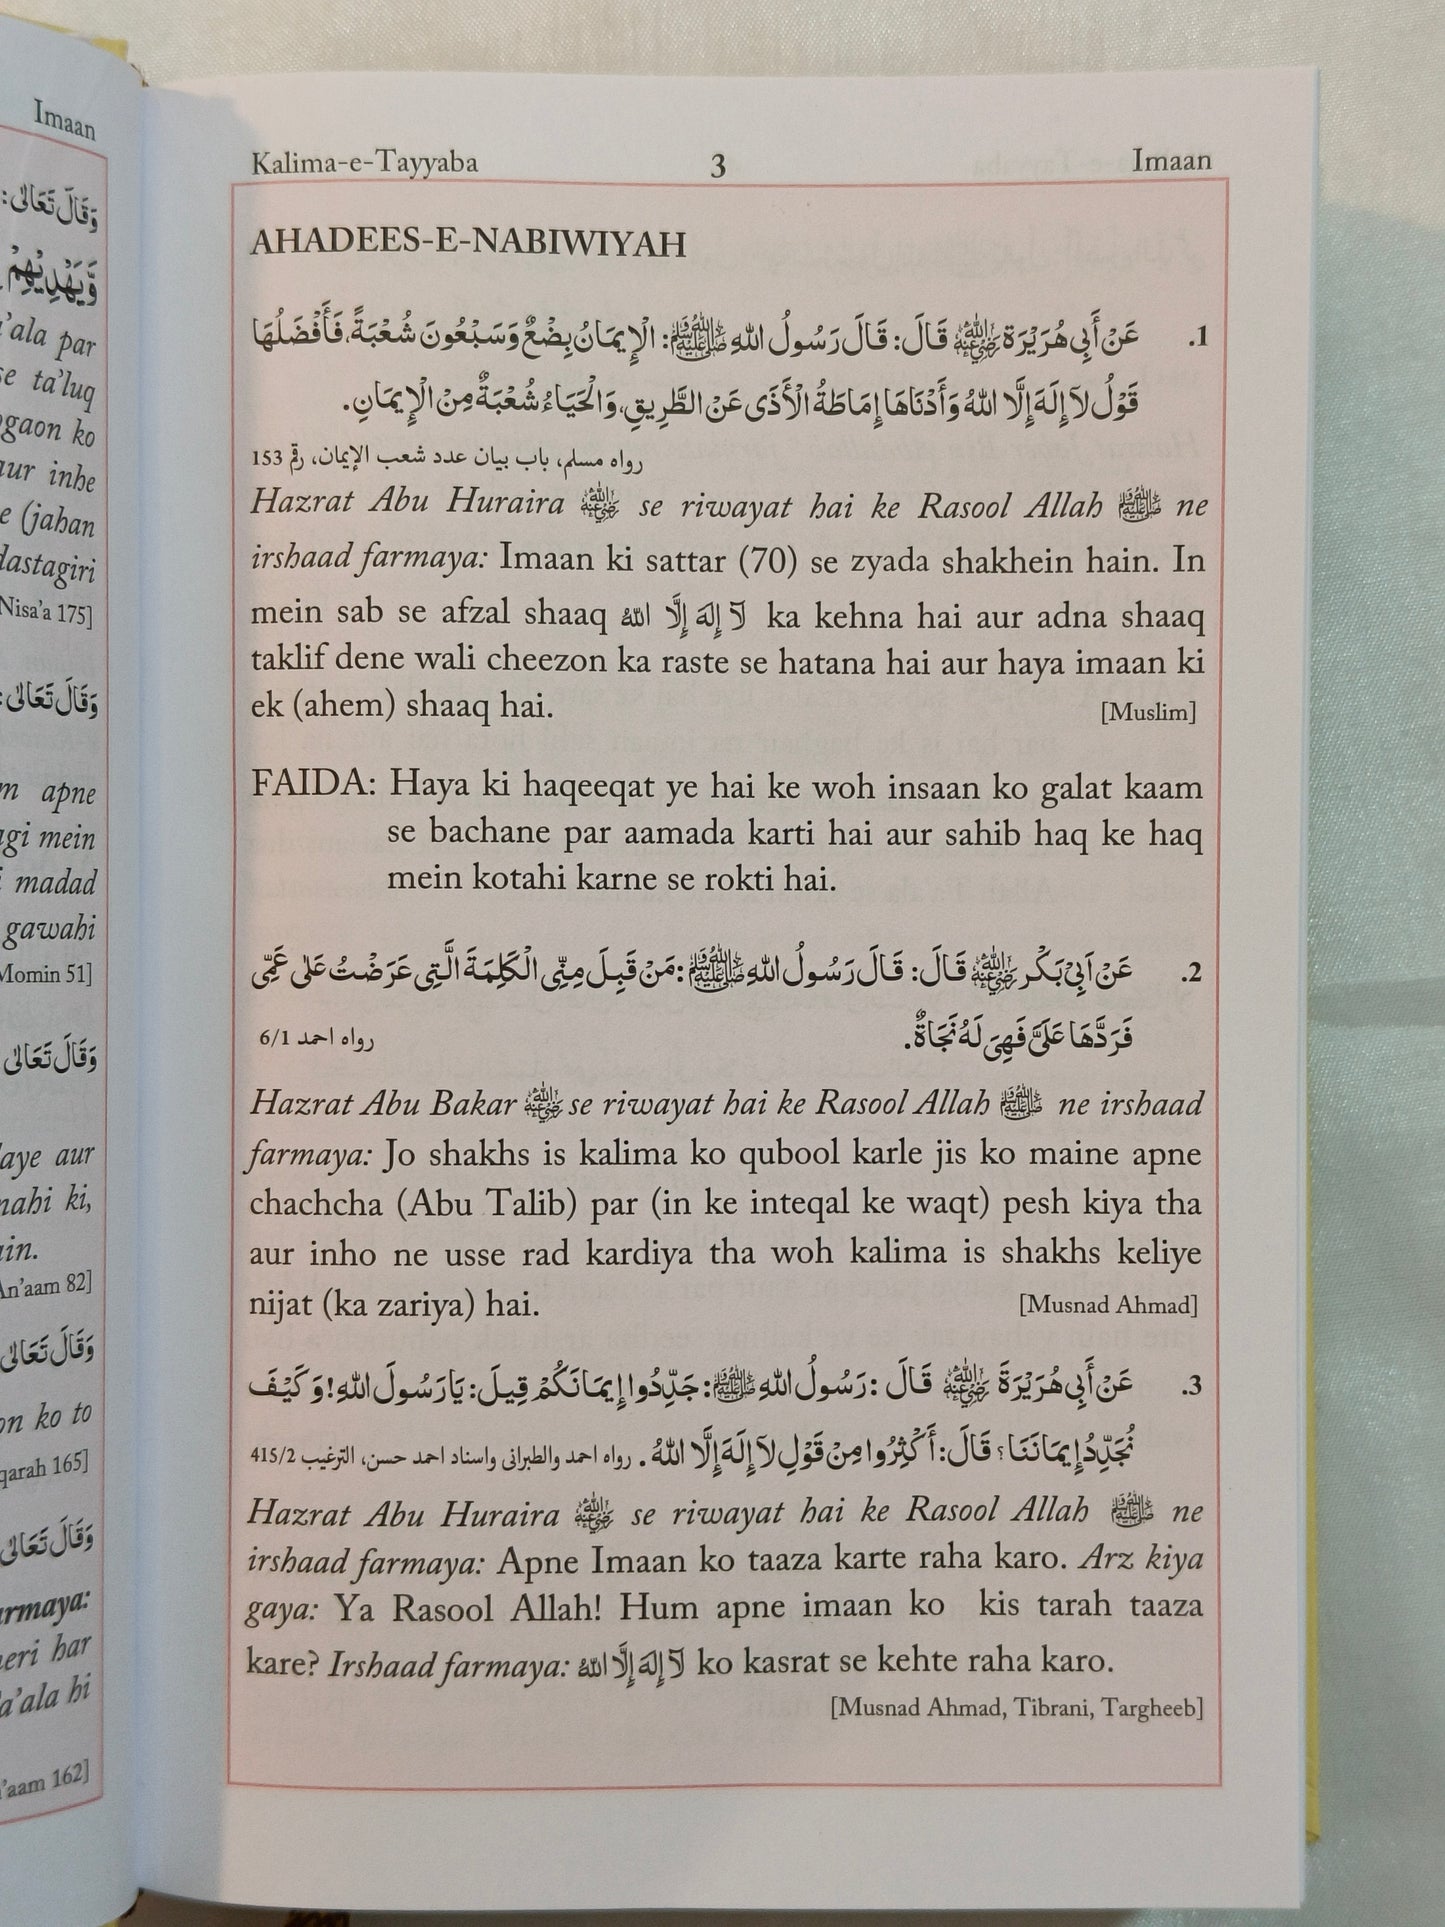 Imaan
وَقَالَ تَعَالٰى:
وَّيَهْدِيْهِمْ
'ala par
se ta'luq
ogaon ko
aur inhe
e (jahan
dastagiri
Nisa'a 175]
وَقَالَ تَعَالٰى:
m apne
agi mein
i madad
gawahi
Momin 51]
وَقَالَ تَعَالٰى
laye aur
nahi ki,
ain.
An'aam 82]
وَقَالَ تَعَالٰى
on ko to
qarah 165]
وَقَالَ تَعَالٰى
armaya:
meri har
a'ala hi
'aam 162]
Kalima-e-Tayyaba 3 Imaan
AHADEES-E-NABIWIYAH
1. عَنْ أَبِى هُرَيْرَةَ ﷛ قَالَ: قَالَ رَسُولُ اللهِ ﷺ: الْإِيمَانُ بِضْعٌ وَسَبْعُونَ شُعْبَةً، فَأَفْضَلُهَا
قَوْلُ لَآ إِلَهَ إِلَّا اللهُ وَأَدْنَاهَا إِمَاطَةُ الْأَذَى عَنْ الطَّرِيقِ، وَالْحَيَاءُ شُعْبَةٌ مِنْ الْإِيمَانِ.
رواه مسلم، باب بيان عدد شعب الإيمان، رقم 153
Hazrat Abu Huraira ﷛ se riwayat hai ke Rasool Allah ﷺ ne
irshaad farmaya: Imaan ki sattar (70) se zyada shakhein hain. In
mein sab se afzal shaaq لَآ إِلٰهَ إِلَّا اللهُ ka kehna hai aur adna shaaq
taklif dene wali cheezon ka raste se hatana hai aur haya imaan ki
ek (ahem) shaaq hai. [Muslim]
FAIDA: Haya ki haqeeqat ye hai ke woh insaan ko galat kaam
se bachane par aamada karti hai aur sahib haq ke haq
mein kotahi karne se rokti hai.
2. عَنْ اَبِىْ بَكْرٍ ﷛ قَالَ: قَالَ رَسُولُ اللهِ ﷺ: مَنْ قَبِلَ مِنِّى الْكَلِمَةَ الَّتِى عَرَضْتُ عَلٰى عَمِّى
فَرَدَّهَا عَلَىَّ فَهِىَ لَهُ نَجَاةٌ. رواه احمد 6/1
Hazrat Abu Bakar ﷛ se riwayat hai ke Rasool Allah ﷺ ne irshaad
farmaya: Jo shakhs is kalima ko qubool karle jis ko maine apne
chachcha (Abu Talib) par (in ke inteqal ke waqt) pesh kiya tha
aur inho ne usse rad kardiya tha woh kalima is shakhs keliye
nijat (ka zariya) hai. [Musnad Ahmad]
3. عَنْ أَبِى هُرَيْرَةَ ﷛ قَالَ: رَسُولُ اللهِ ﷺ: جَدِّدُوا إِيمَانَكُمْ قِيلَ: يَا رَسُولَ اللهِ! وَ كَيْفَ
نُجَدِّدُ إِيمَانَنَا؟ قَالَ: أَكْثِرُوا مِنْ قَوْلِ لَآ إِلَهَ إِلَّا اللهُ. رواه احمد والطبرانى واسناد احمد حسن، الترغيب 415/2
Hazrat Abu Huraira ﷛ se riwayat hai ke Rasool Allah ﷺ ne
irshaad farmaya: Apne Imaan ko taaza karte raha karo. Arz kiya
gaya: Ya Rasool Allah! Hum apne imaan ko kis tarah taaza
kare? Irshaad farmaya: لَآ إِلٰهَ إِلَّا اللهُ ko kasrat se kehte raha karo.
[Musnad Ahmad, Tibrani, Targheeb]